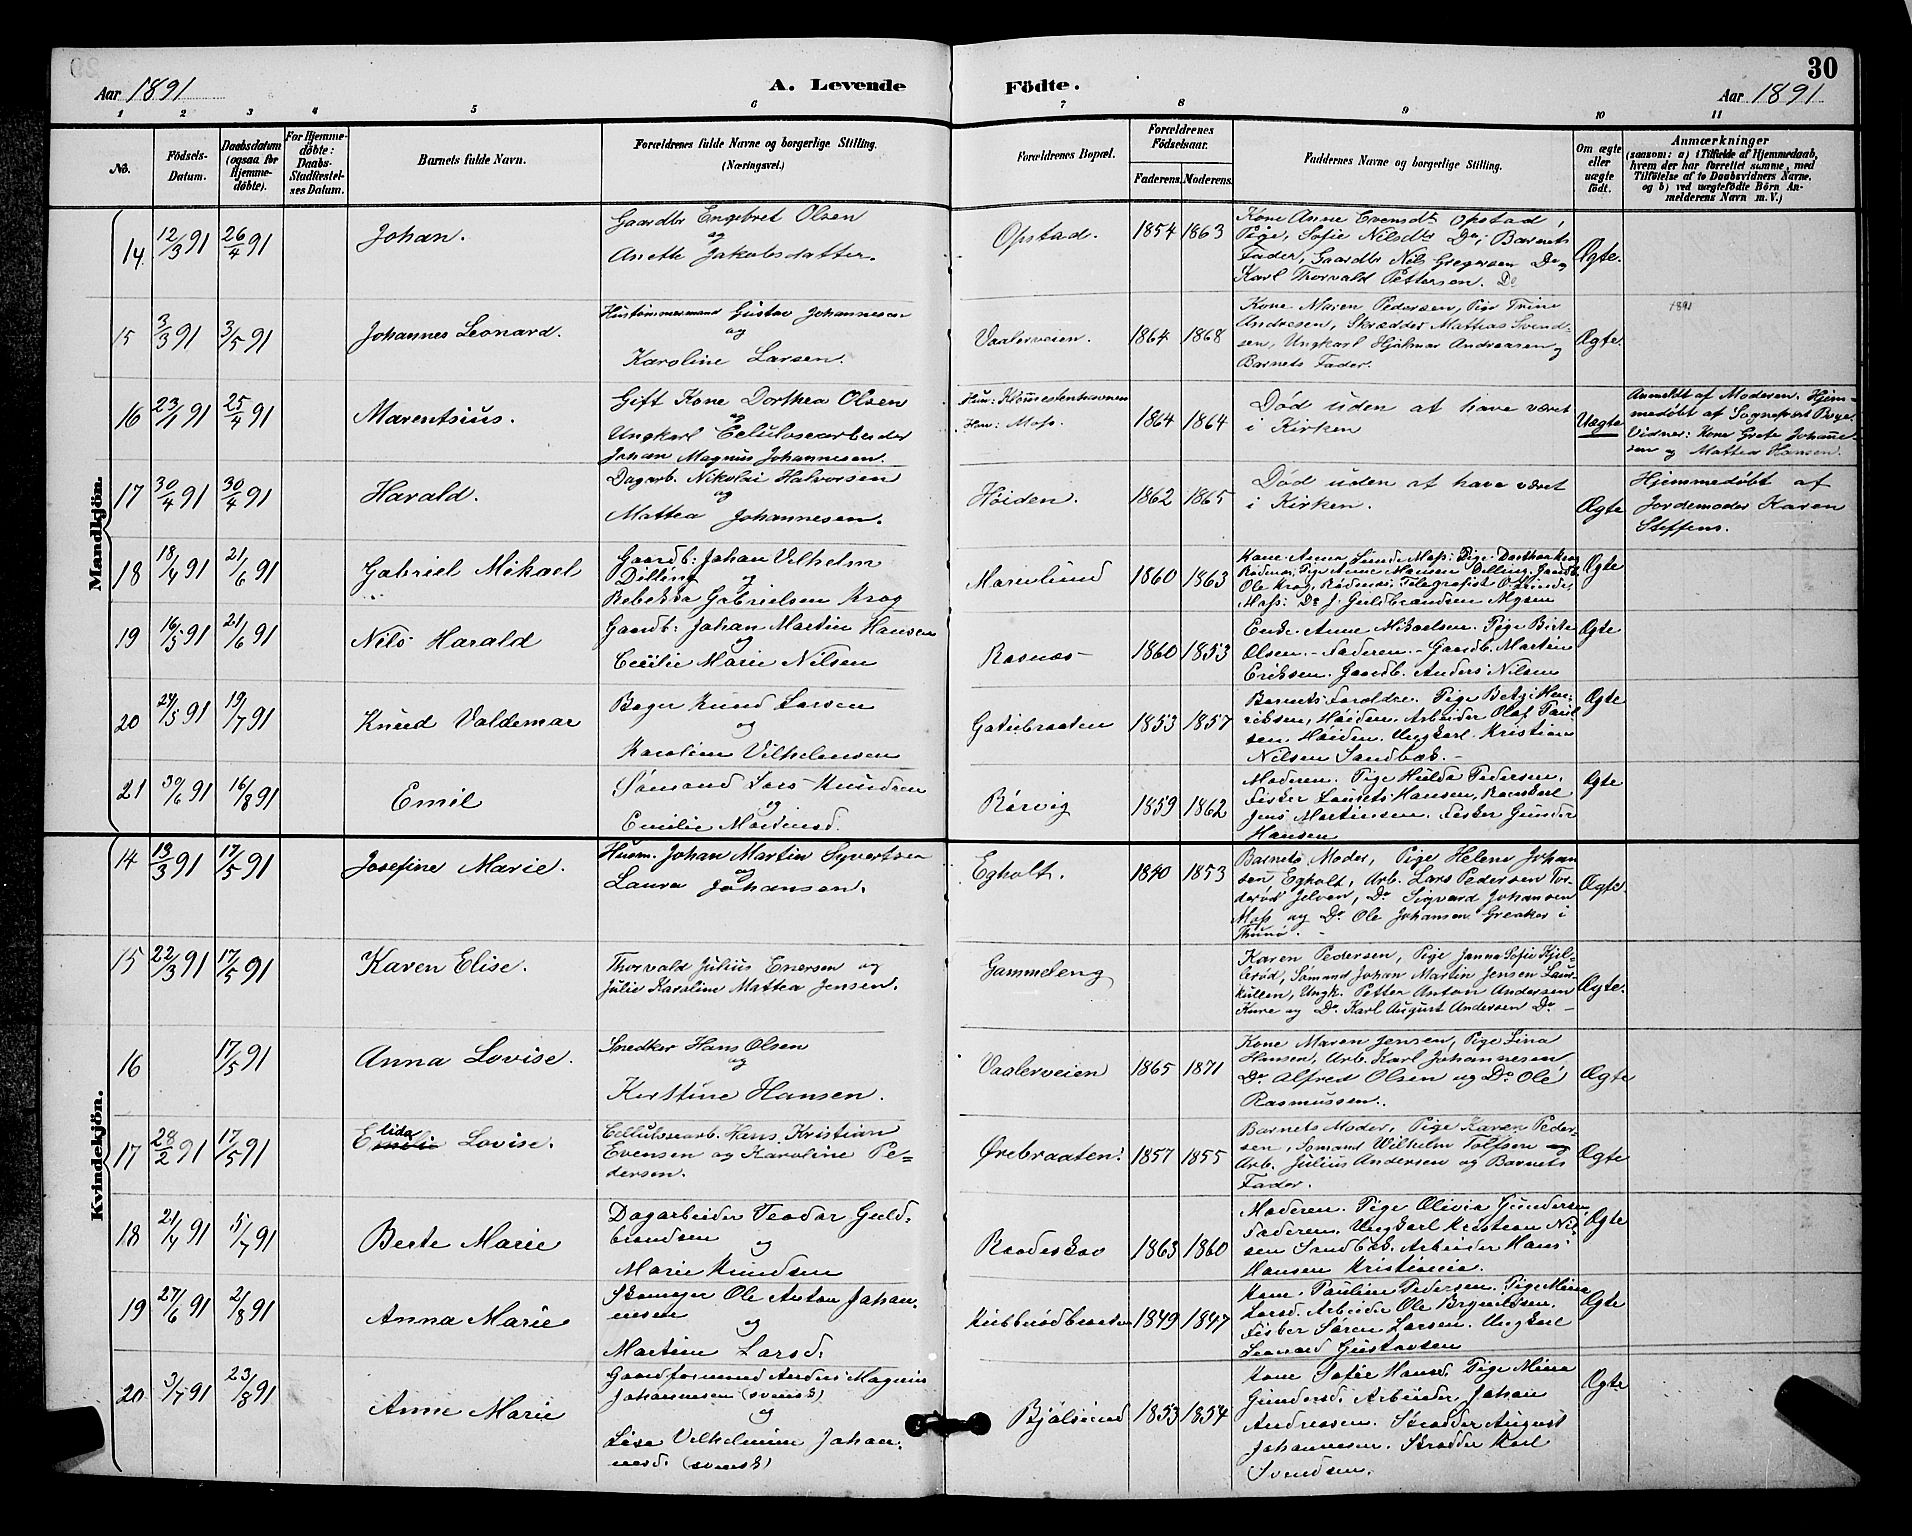 30
Aar 1891
A. Levende
Födte.
Aar 1891
1 2 3 4 5 6 7 8 9 10 11
No.
Födsels-Datum.
Daabsdatum (ogsaa for Hjemmedöbte).
For Hjemmedöbte: Daabs-Stadfæstelses Datum.
Barnets fulde Navn.
Forældrenes fulde Navne og borgerlige Stilling.
(Næringsvei.)
Forældrenes Bopæl.
Forældrenes Födselsaar.
Faderens. Moderens.
Faddernes Navne og borgerlige Stilling.
Om ægte eller uægte födt.
Anmærkninger
(saasom: a) i Tilfælde af Hjemmedaab,
hvem der har forrettet samme, med
Tilföielse af to Daabsvidners Navne,
og b) ved uægtefödte Börn Anmelderens Navn m. V.)
Mandkjön.
14. 12/3 91 26/4 91 Johan.
Gaardbr Engebret Olsen
og
Anette Jakobsdatter.
Opstad. 1854 1863
Kone Anne Evensdtr Opstad,
Pige, Sofie Nilsdtr Do, Barnets
Fader, Gaardbr Nils Gregersen Do og
Karl Thorvald Pettersen. Do
Ægte.
15 3/3 91 3/5 91 Johannes Leonard.
Hustømmermand Gustav Johannesen
og
Karoline Larsen.
Vaalerveien. 1864 1868
Kone Maren Pedersen, Pige Trine
Andresen, Skrædder Mathias Svend-
sen, Ungkarl Hjalmar Andreasen og
Barnets Fader.
Ægte.
1891
16 23/1 91 25/4 91 Marentsius.
Gift Kone Dorthea Olsen
og
Ungkarl Celulosearbeider
Johan Magnus Johannesen.
Hun:
Han: Moss.
1864 1864
Død uden at have været
i Kirken
Uægte
Anmeldt af Moderen. Hjem-
medøbt af Sognepræst Boye
Vidner: Kone Grete Johanne-
sen og Mattea Hansen.
17 30/4 91 30/4 91 Harald.
Dagarb. Nikolai Halvorsen
og
Mattea Johannesen.
Høiden. 1862 1865
Død uden at have været
i Kirken.
Ægte
Hjemmedøbt af
Jordemoder Karen
Steffens.
18 18/4 91 21/6 91 Gabriel Mikael
Gaardb: Johan Vilhelm
Dilling og
Rebekka Gabrielsen Krog
Marielund 1860 1863
Kone Anna Lund Moss: Pige Dorthea Krog
Rødenæs, Pige Anne Hansen Dilling, Gaardb.
Ole Krog, Rødenæs, Telegrafist O. Krinde,
Moss: Do J. Guldbrandsen Mysen
Ægte
19 16/5 91 21/6 91 Nils Harald
Gaardb: Johan Martin Hansen
og
Cecilie Marie Nilsen
Rosnæs 1860 1853
Enke Anne Mikaelsen. Pige Birte
Olsen. Faderen. Gaardb. Martin
Eriksen. Gaardb. Anders Nilsen
Ægte
20 24/5 91 19/7 91 Knud Valdemar
Bager Knud Larsen
og
Karoline Vilhelmsen
Gatubraaten 1853 1857
Barnets Forældre. Pige Betzi Hen-
riksen, Høiden. Arbeider Olaf Paul-
sen. Høiden. Ungkarl Kristian
Nilsen Sandbæk.
Ægte
21 30/6 91 16/8 91 Emil
Sømand Lars Knudsen
og
Emilie
Rørvig 1859 1862
Moderen. Pige Hulda Pedersen.
Fisker Laurets Hansen,
Jens Martinsen. Fisker Gunder
Hansen
Ægte
Kvindekjön.
14 13/3 91 17/5 91 Josefine Marie.
Husm. Johan Martin Syvertsen
og
Laura Johansen.
Egholt. 1840 1853
Barnets Moder, Pige Helene Johan
sen Egholt, Arb. Lars Pedersen Tor-
derød Jeløen, Do Sigvard Johansen
Moss og Do Ole Johansen Greaker i
Thunø.
Ægte.
15 22/3 91 17/5 91 Karen Elise.
Thorvald Julius Enersen og
Julie Karoline Mattea Jensen.
Gammeleng
Karen Pedersen, Pige Janna Sofie Kjel-
lerød, Sømand Johan Martin Jensen Laur-
kullen, Ungk. Petter Anton Andersen
Kure og Do Karl August Andersen Do
Ægte.
16 17/5 91 Anna Lovise.
Snedker Hans Olsen
og
Kirstine Hansen.
Vaalerveien 1865 1871
Kone Maren Jensen, Pige Lina
Hansen, Arb. Karl Johannesen
Do Alfred Olsen og Do Ole
Rasmussen.
Ægte
17 28/2 91 17/5 91 Elida Lovise.
Cellulosearb. Hans Kristian
Evensen og Karoline Pe-
dersen.
Ørebraaten. 1857 1855
Barnets Moder, Pige Karen Peder-
sen, Sømand Wilhelm Tolfsen og
Arb. Julius Andersen og Barnets
Fader.
Ægte
18 21/4 91 5/7 91 Berte Marie
Dagarbeider Teodor Guld-
brandsen
og
Marie Knudsen
Raadeskov 1863 1860
Moderen. Pige Olivia Gundersen
Faderen. Ungkarl Kristian Nil-
sen Sandbæk. Arbeider Hans
Hansen Kristiania.
Ægte
19 27/6 91 2/8 91 Anna Marie
Skomager Ole Anton Johan-
nesen
og
Martine Larsd.
Kubberødbraaten 1849 1847
Kone Pauline Pedersen. Pige Mina
Larsd. Arbeider Ole Brynildsen.
Fisker Søren Larsen. Ungkarl
Leonard Gustavsen
Ægte
20 3/7 91 23/8 91 Anne Marie
Gaardformand Anders Magnus
Johannesen (svensk)
og
Lise Vilhelmine Johan-
nesd. (svensk)
Bjølsund 1853 1854
Kone Sofie Hansd. Pige Mina
Gundersd. Arbeider Johan
Andreasen. Skrædder August
Johannesen. Skrædder Karl
Svendsen.
Ægte